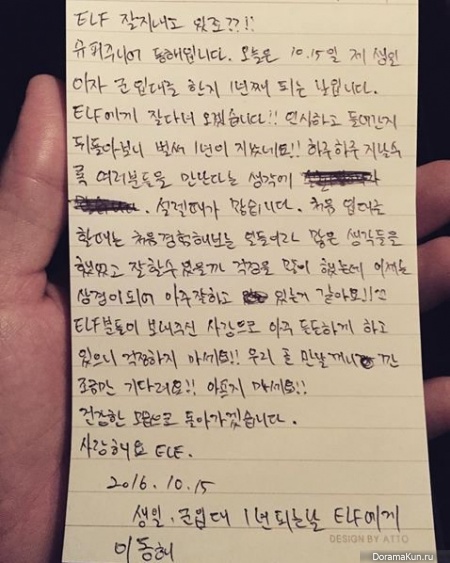 ELF 잘지내고 있죠??!!
슈퍼주니어 동해입니다. 오늘은 10.15일 제 생일
이자 군입대를 한지 1년째 되는 날입니다.
ELF에게 잘다녀 오겠습니다!! 인사하고 들어간지
뒤돌아보니 벌써 1년이 지났네요!! 하루하루 지날수
록 여러분들을 만난다는 생각에
. 설렐때가 많습니다. 처음 입대를
할때는 처음경험해보는 일들이라 많은 생각들을
했었고 잘할수 있을까 걱정을 많이 했는데 이제는
상경이되어 아주잘하고 있는거 같아요!!
ELF분들이 보내주신 사랑으로 아주 든든하게 하고
있으니 걱정하지 마세요!! 우리 곧 만날꺼니깐
조금만 기다려요!! 아프지 마세요!!
건강한 모습으로 돌아가겠습니다.
사랑해요 ELF.
2016.10.15
생일, 군입대 1년되는날 ELF에게
이동해
DESIGN BY ATTO
DoramaKun.ru